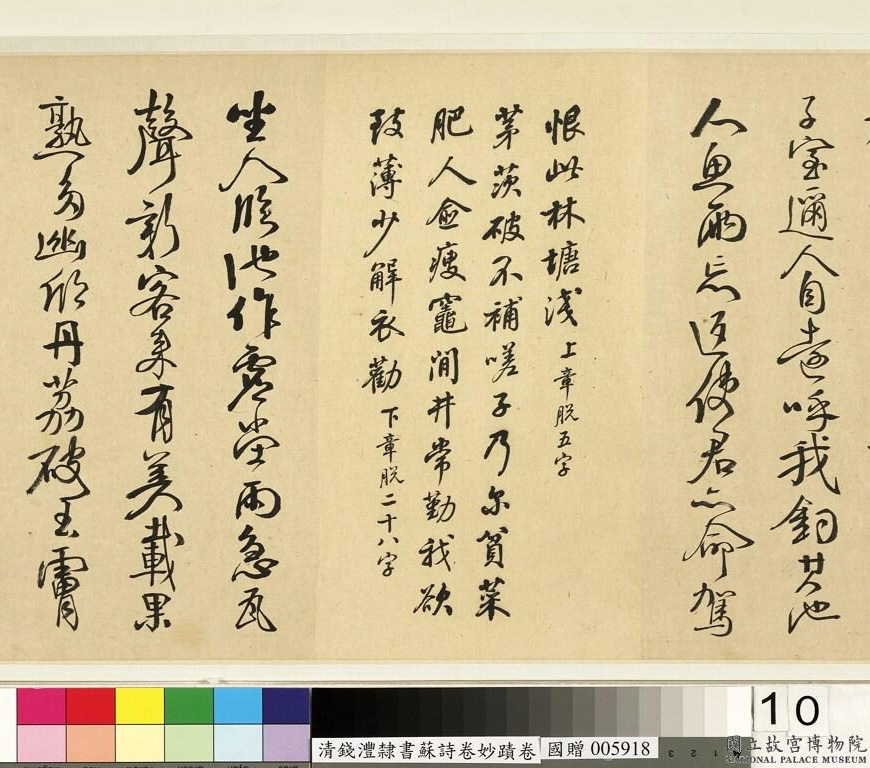 子室邇人自遠呼我釣其池
人魚兩忘返使君亦命駕
恨此林塘淺 上章脫五字
茅茨破不補嗟子乃尔貧菜
肥人愈瘦竈閒井常勤我欲
致薄少解衣勸 下章脫二十八字
坐人臨池作虛堂雨急瓦
聲新客來有美載果
熟多幽欣丹荔破玉膚
清錢灃隸書蘇詩卷妙蹟卷 國贈 005918
10
國立故宮博物院
NATIONAL PALACE MUSEUM